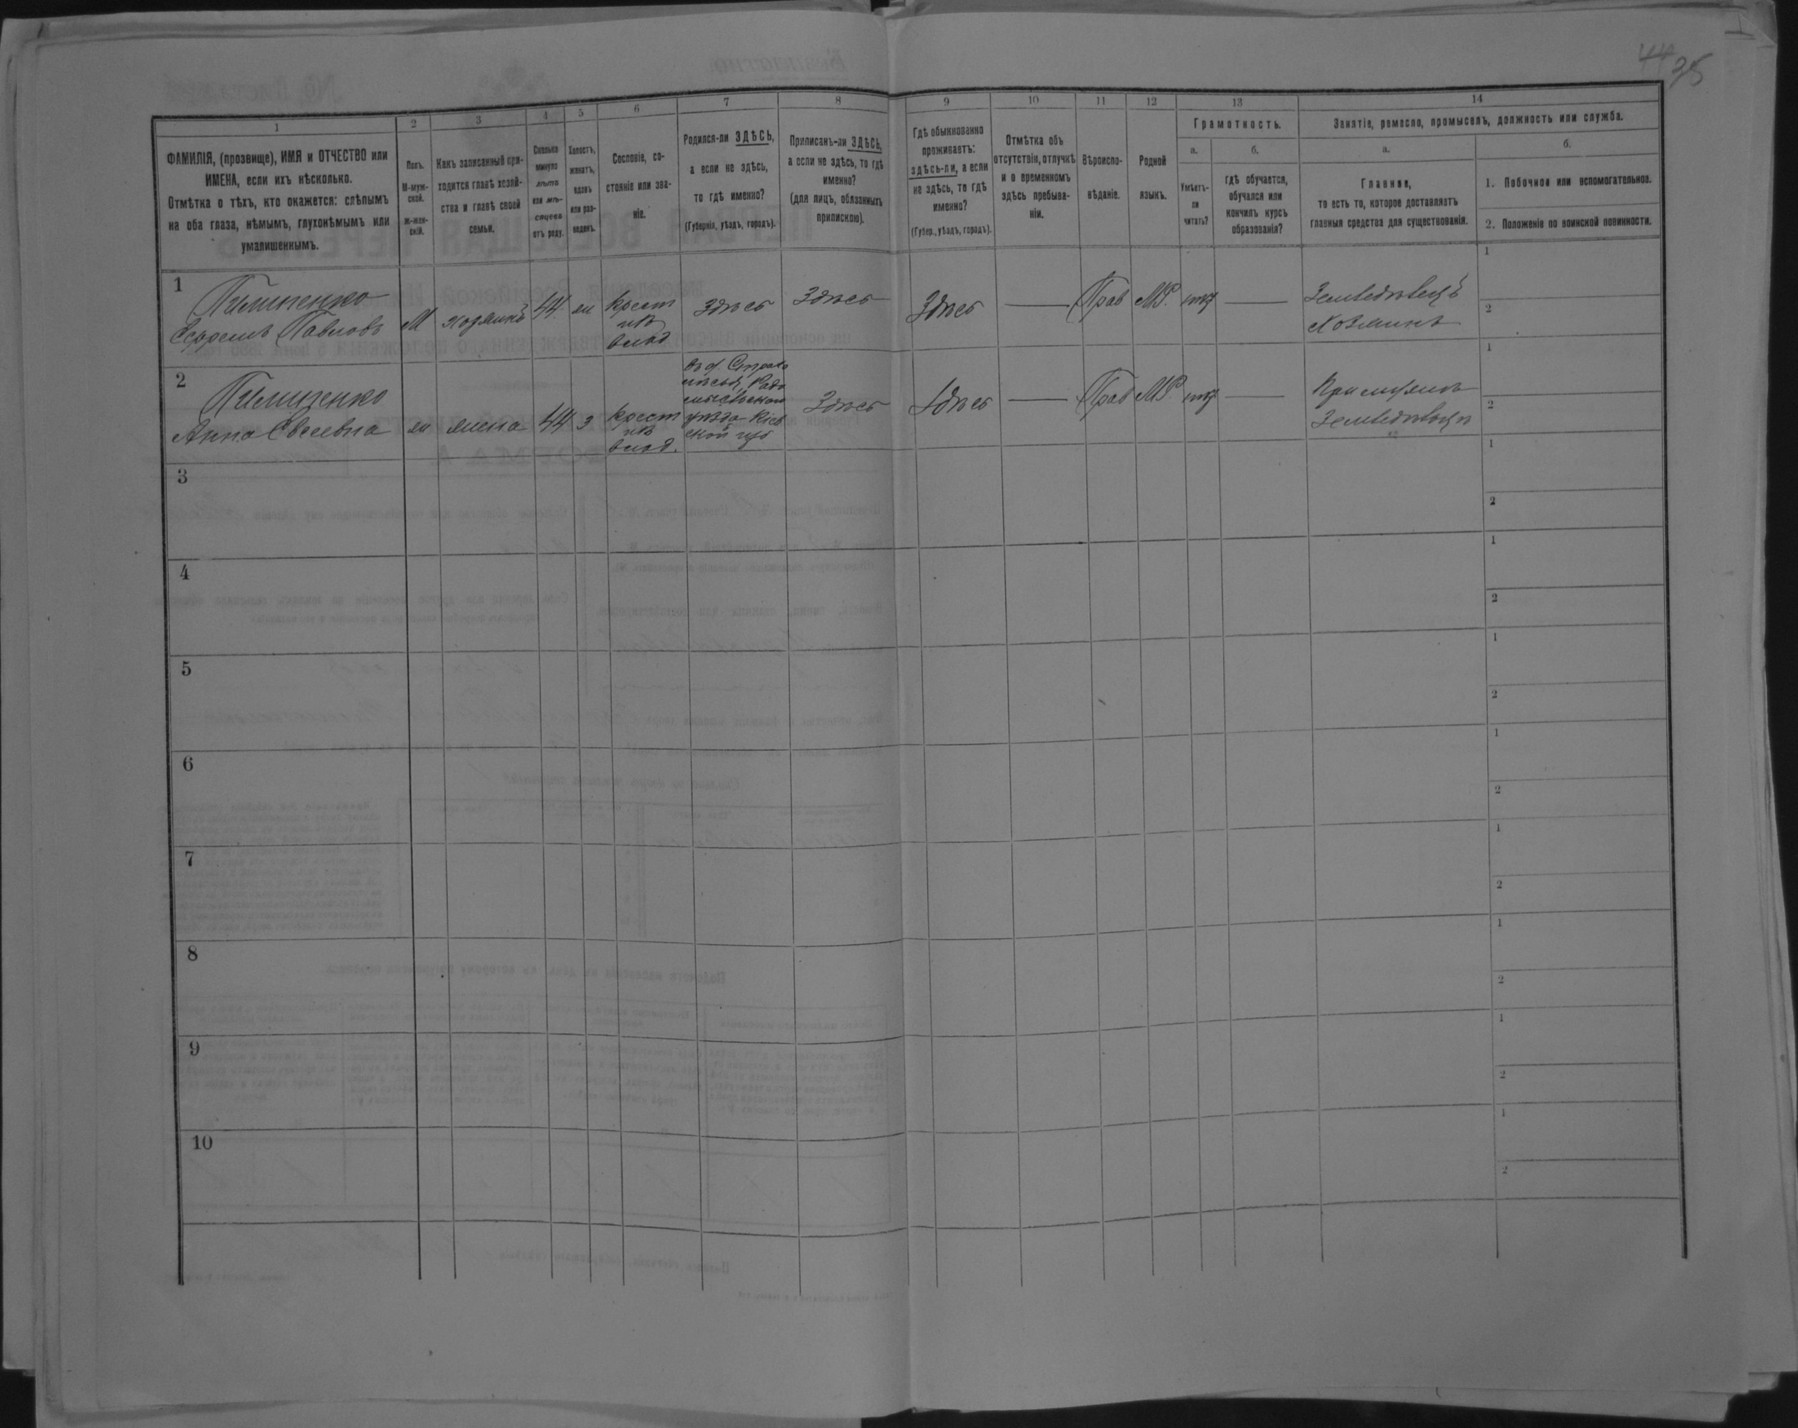 44 35
1
2
3
4
5
6
7
8
9
10
11
12
13
14
ФАМИЛІЯ, (прозвище), ИМЯ и ОТЧЕСТВО или
ИМЕНА, если ихъ нѣсколько.
Отмѣтка о тѣхъ, кто окажется: слѣпымъ
на оба глаза, нѣмымъ, глухонѣмымъ или
умалишеннымъ.
Полъ.
М-муж-
ской.
Ж-жен-
скій.
Какъ записанный при-
ходится главѣ хозяй-
ства и главѣ своей
семьи.
Сколько
минуло
лѣтъ
или мѣ-
сяцевъ
отъ роду.
Холостъ,
женатъ,
вдовъ
или раз-
веденъ.
Сословіе, со-
стояніе или зва-
ніе.
Родился-ли ЗДѢСЬ,
а если не здѣсь,
то гдѣ именно?
(Губернія, уѣздъ, городъ).
Приписанъ-ли ЗДѢСЬ,
а если не здѣсь, то гдѣ
именно?
(для лицъ, обязанныхъ
припискою).
Гдѣ обыкновенно
проживаетъ:
здѣсь-ли, а если
не здѣсь, то гдѣ
именно?
(Губер., уѣздъ, городъ).
Отмѣтка объ
отсутствіи, отлучкѣ
и о временномъ
здѣсь пребыва-
ніи.
Вѣроиспо-
вѣданіе.
Родной
языкъ.
Грамотность.
а.
Умѣетъ-
ли
читать?
б.
гдѣ обучается,
обучался или
кончилъ курсъ
образованія?
Занятіе, ремесло, промыселъ, должность или служба.
а.
Главное,
то есть то, которое доставляетъ
главныя средства для существованія.
б.
1. Побочное или вспомогательное.
2. Положеніе по воинской повинности.
1
Пилипенко
Павловъ
М
хозяинъ
44
ж
крест
изъ
влад
здѣсь
Здѣсь
Здѣсь
Прав
МР.
нѣт
Земледѣлецъ
хозяинъ
1
2
2
Пилипенко
Анна Евсеевна
ж
жена
44
з
крест
изъ
влад.
уѣзда Кіев
ской губ
Здѣсь
Здѣсь
Прав
МР
нѣт
При мужѣ
Земледѣлецъ
1
2
3
1
2
4
1
2
5
1
2
6
1
2
7
1
2
8
1
2
9
1
2
10
1
2